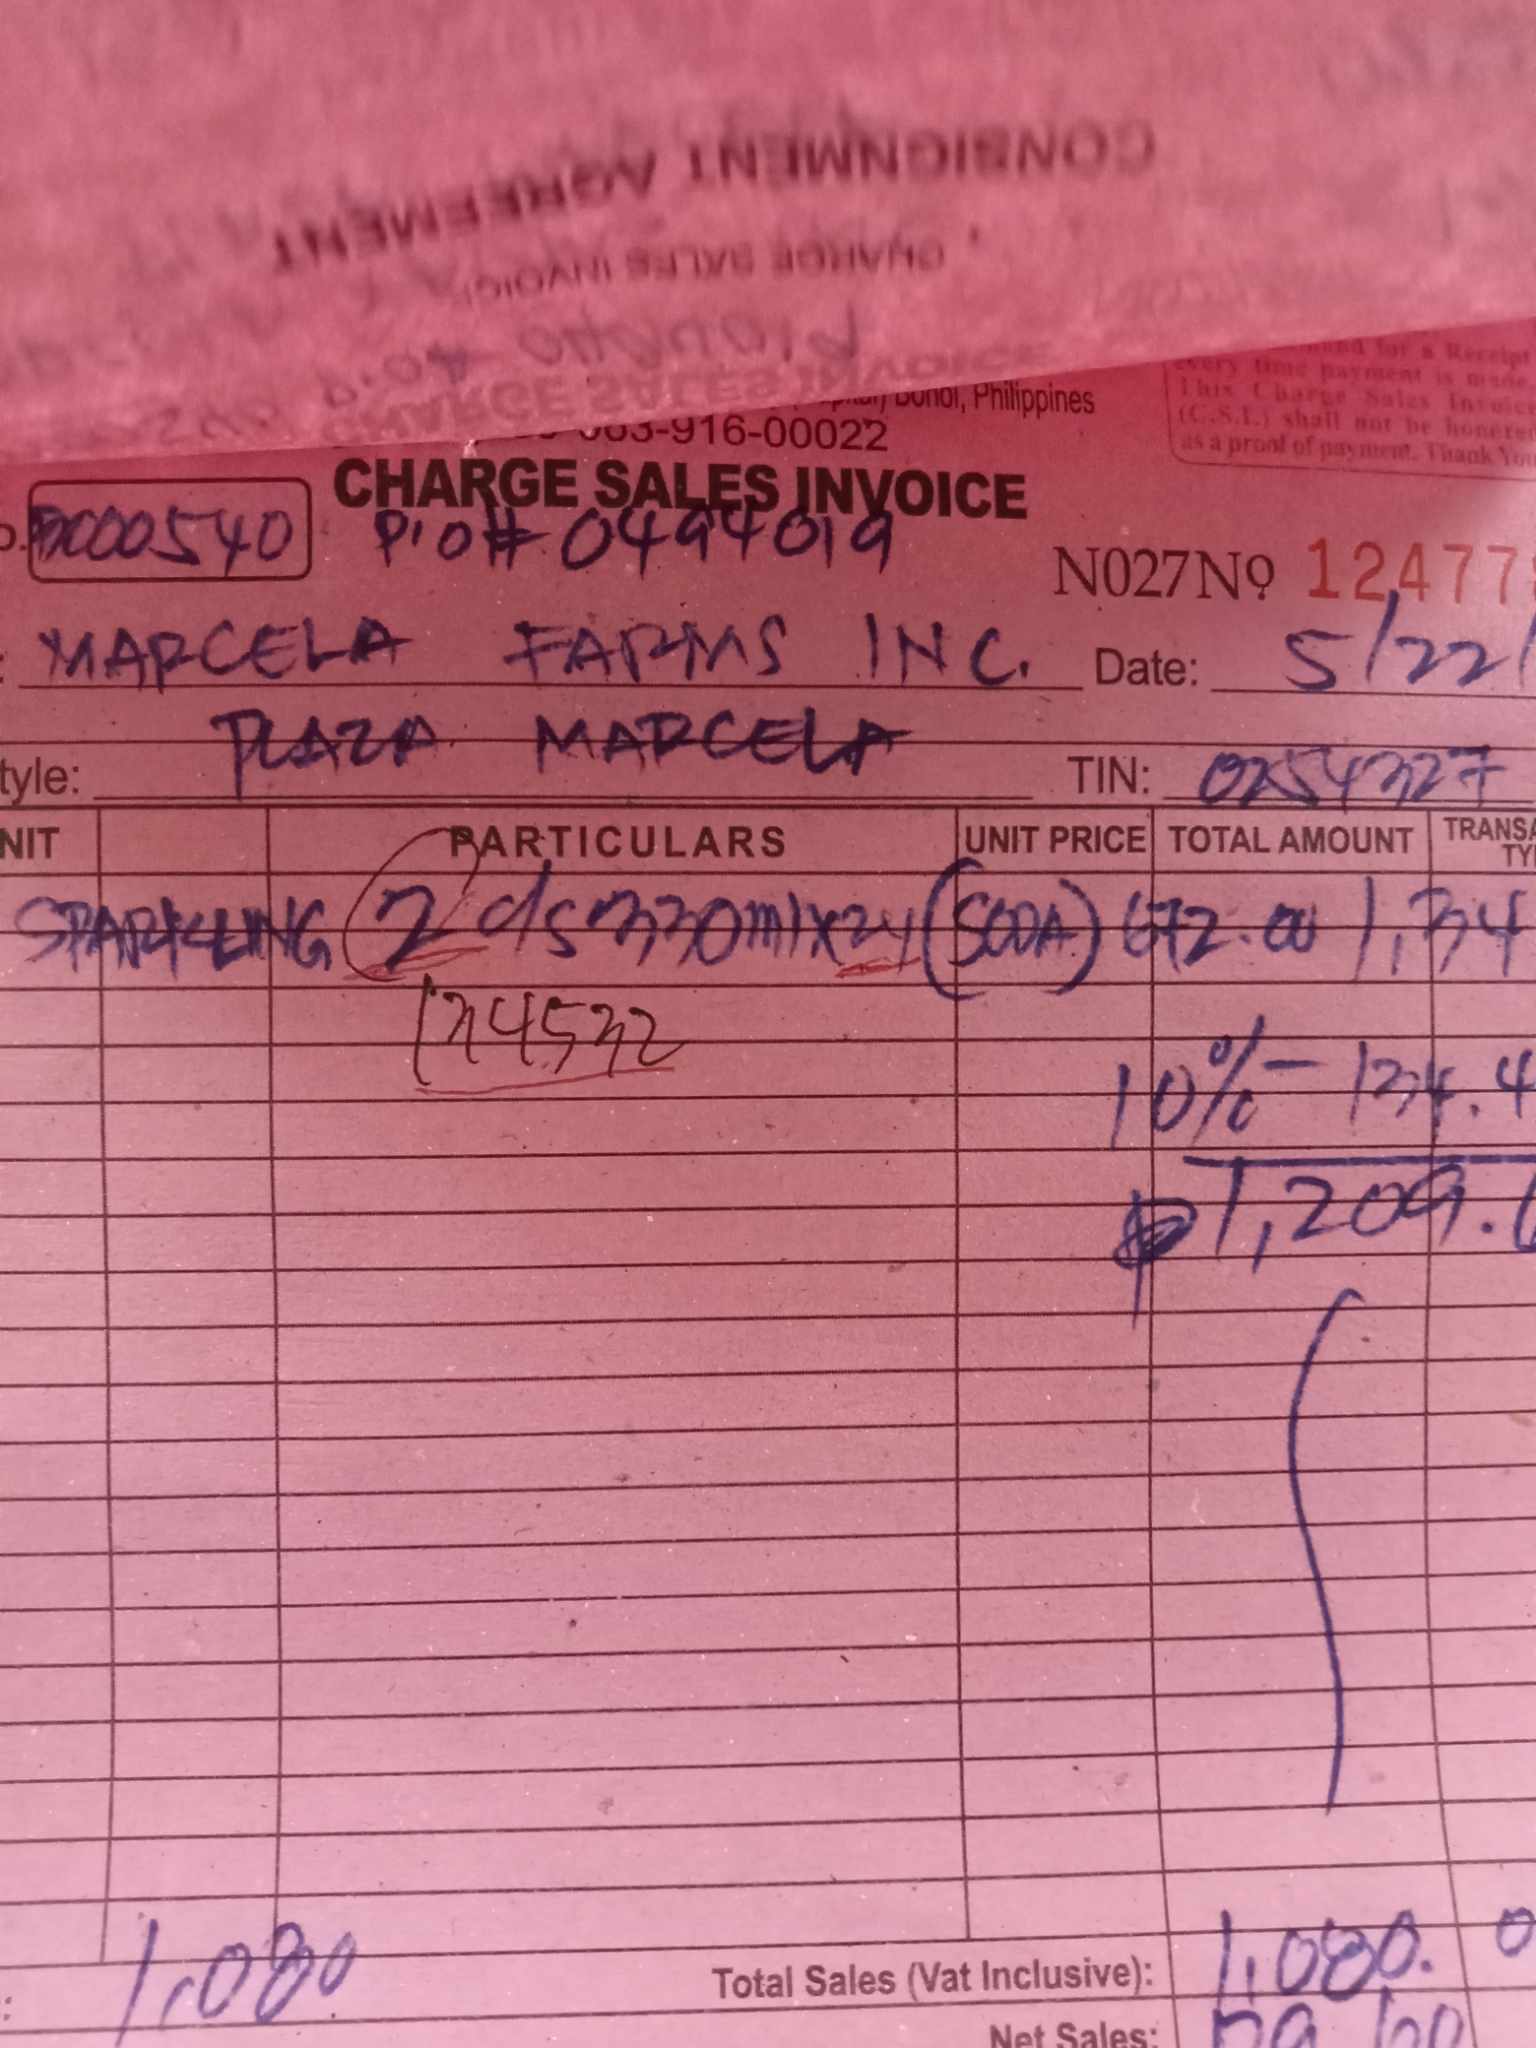 CONSIGNMENT AGREEMENT
CHARGE SALES INVOICE
P.O#
CHARGE SALES INVOICE
Bohol, Philippines
063-916-00022
for a Receipt
every time payment is made
This Charge Sales Invoice
(C.S.I.) shall not be honored
as a proof of payment. Thank You
CHARGE SALES INVOICE
000540 P.O# 0494019
N027No 12477
MARCELA FARMS INC. Date: 5/22/
PLAZA MARCELA
tyle: TIN: 0254327
NIT PARTICULARS UNIT PRICE TOTAL AMOUNT TRANSA
TY
SPARKLING 2 c/s 330mlx24 (SODA) 672.00 1,34
134532
10% - 134.4
₱1,209.
1,080 Total Sales (Vat Inclusive): 1,080. 0
Net Sales: